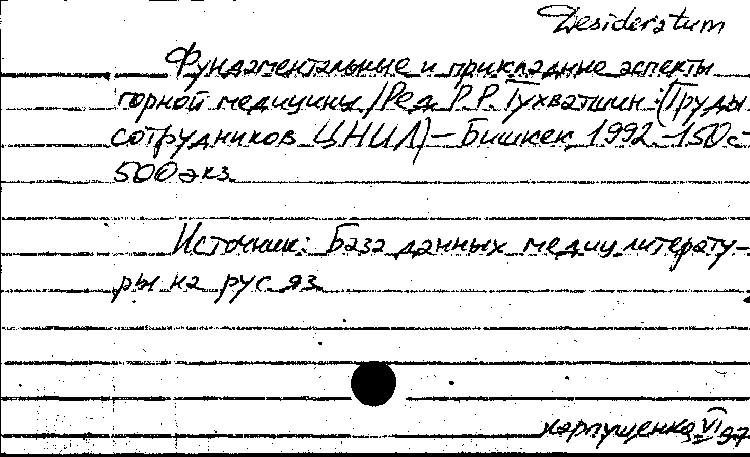 Desideratum
Фундаментальные и прикладные аспекты
горной медицины /Ред. Р.Р. Тухватшин (Труды
сотрудников ЦНИЛ) – Бишкек, 1992. – 150 с –
500 экз.
Источник: База данных медиц литерату-
ры на рус яз
Карпущенко VI 97